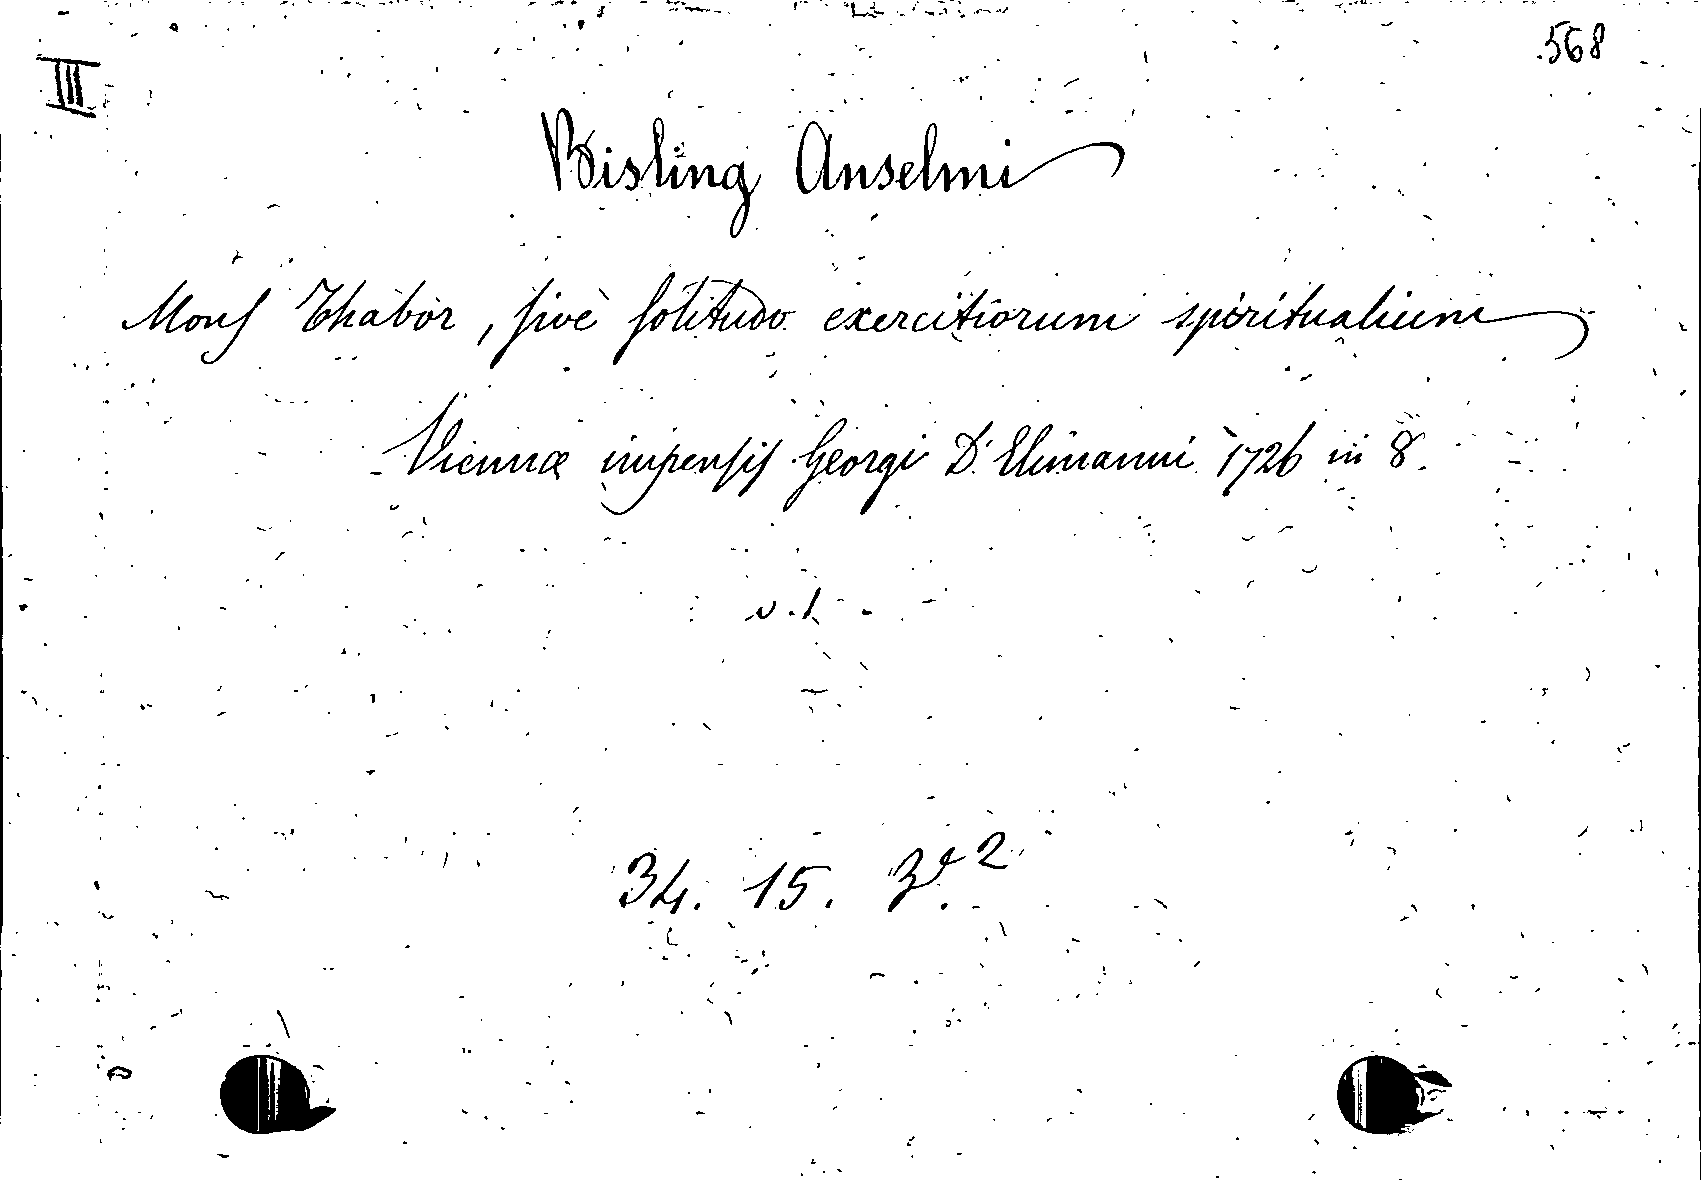 568
III
Bisling Anselmi
Mons Thabor, sive solitudo exercitiorum spiritualium
Viennæ impensis Georgi D. Elimanni 1726 in 8.
v. 1.
34. 15. 2